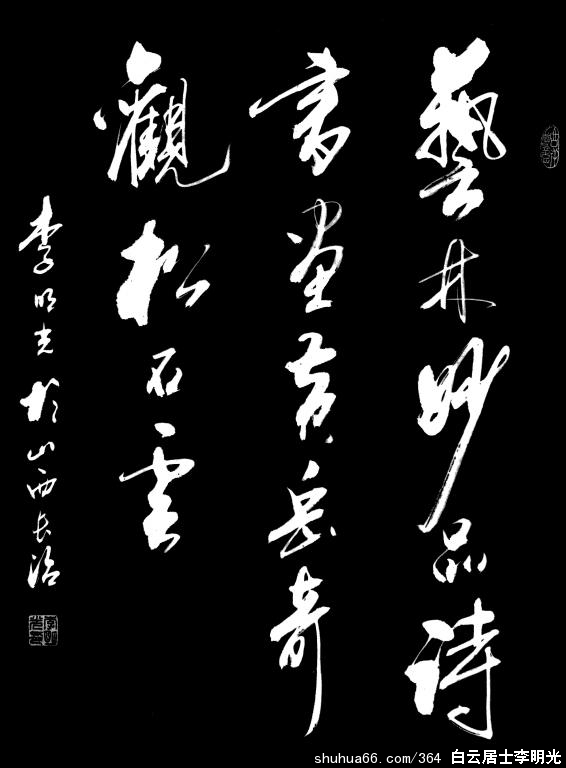 藝林妙品詩
書畫黄岳奇
觀松石雲
李明光於山西长治
shuhua66.com/364 白云居士李明光